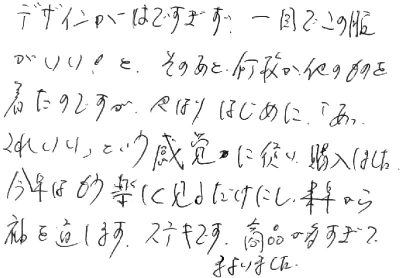 デザインがはですぎず、一目でこの服
がいい!と、そのあと何故か他のものを
着たのですが、やはりはじめに、「あっ
これいい」という感覚に従い購入しました。
今年はもう楽しく見るだけにし、来年から
袖を通します。ステキです。商品が多すぎて、
まよいました。